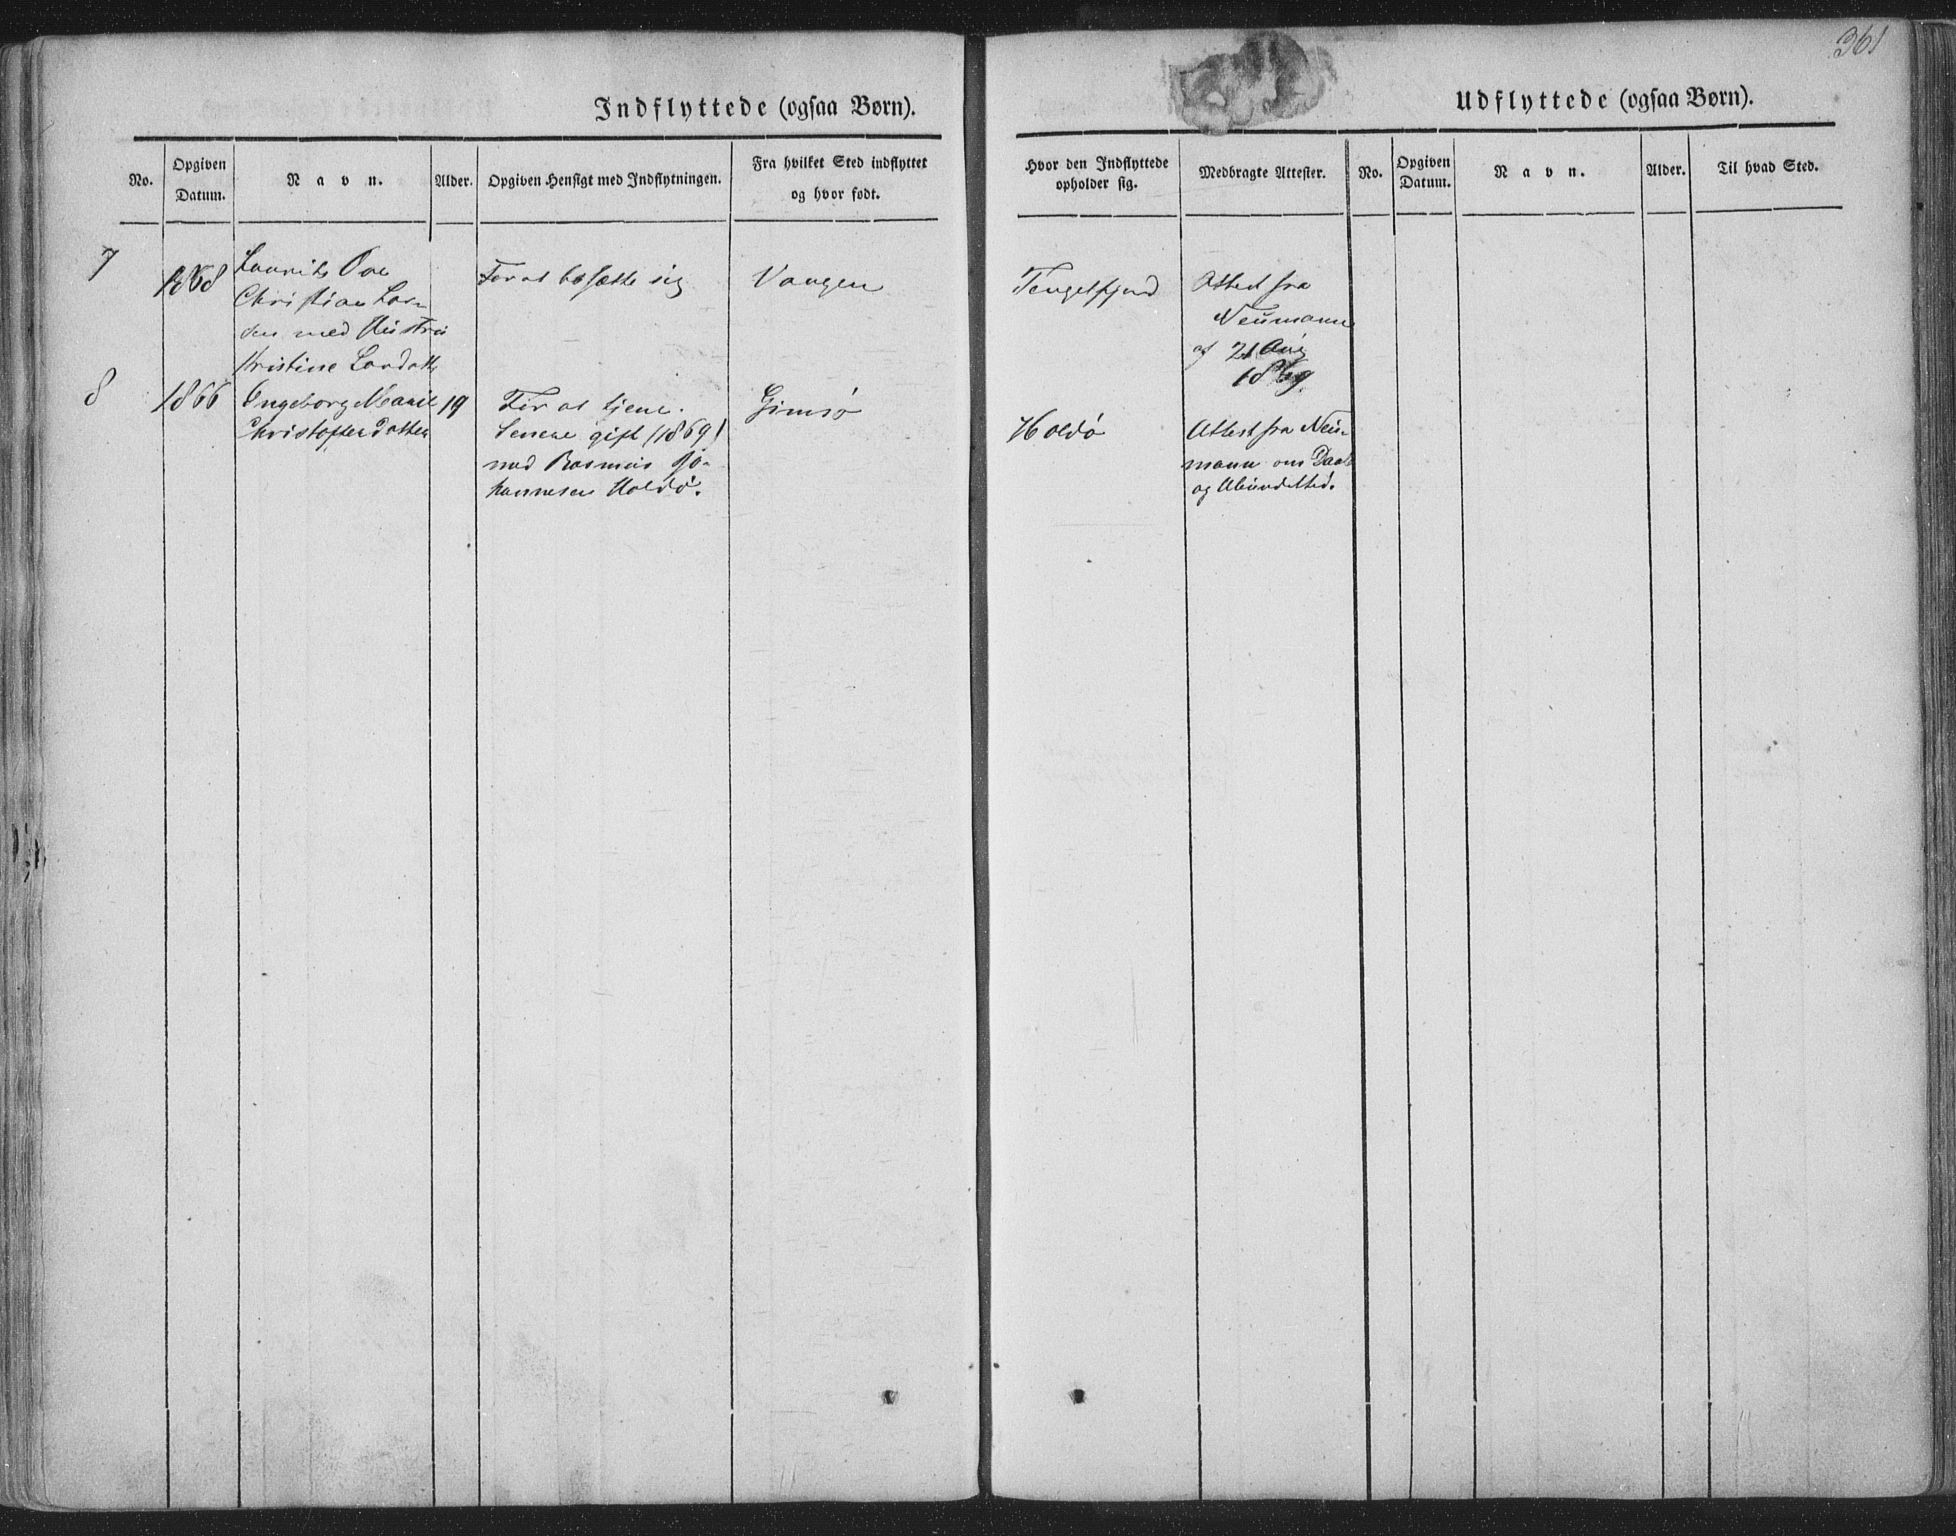 361
Indflyttede (ogsaa Børn).
No.
Opgiven
Datum.
Navn.
Alder.
Opgiven Hensigt med Indflytningen.
Fra hvilket Sted indflyttet
og hvor født.
7
1868
Laurits Ove
Christian Lar-
sen med Hustru
Kristine Larsdatt
For at bosætte sig
Vaagen
8
1866
Ingeborg Marie
Christofferdatter
19
For at tjene.
Senere gift (1869)
med Rasmus Jo-
hannesen Holdø.
Gimsø
Udflyttede (ogsaa Børn).
Hvor den Indflyttede
opholder sig.
Medbragte Attester.
No.
Opgiven
Datum.
Navn.
Alder.
Til hvad Sted.
Tengelfjord
Attest fra
Neumann
af 21 Aug
1869.
Holdø
Attest fra Neu-
mann om Daab
og